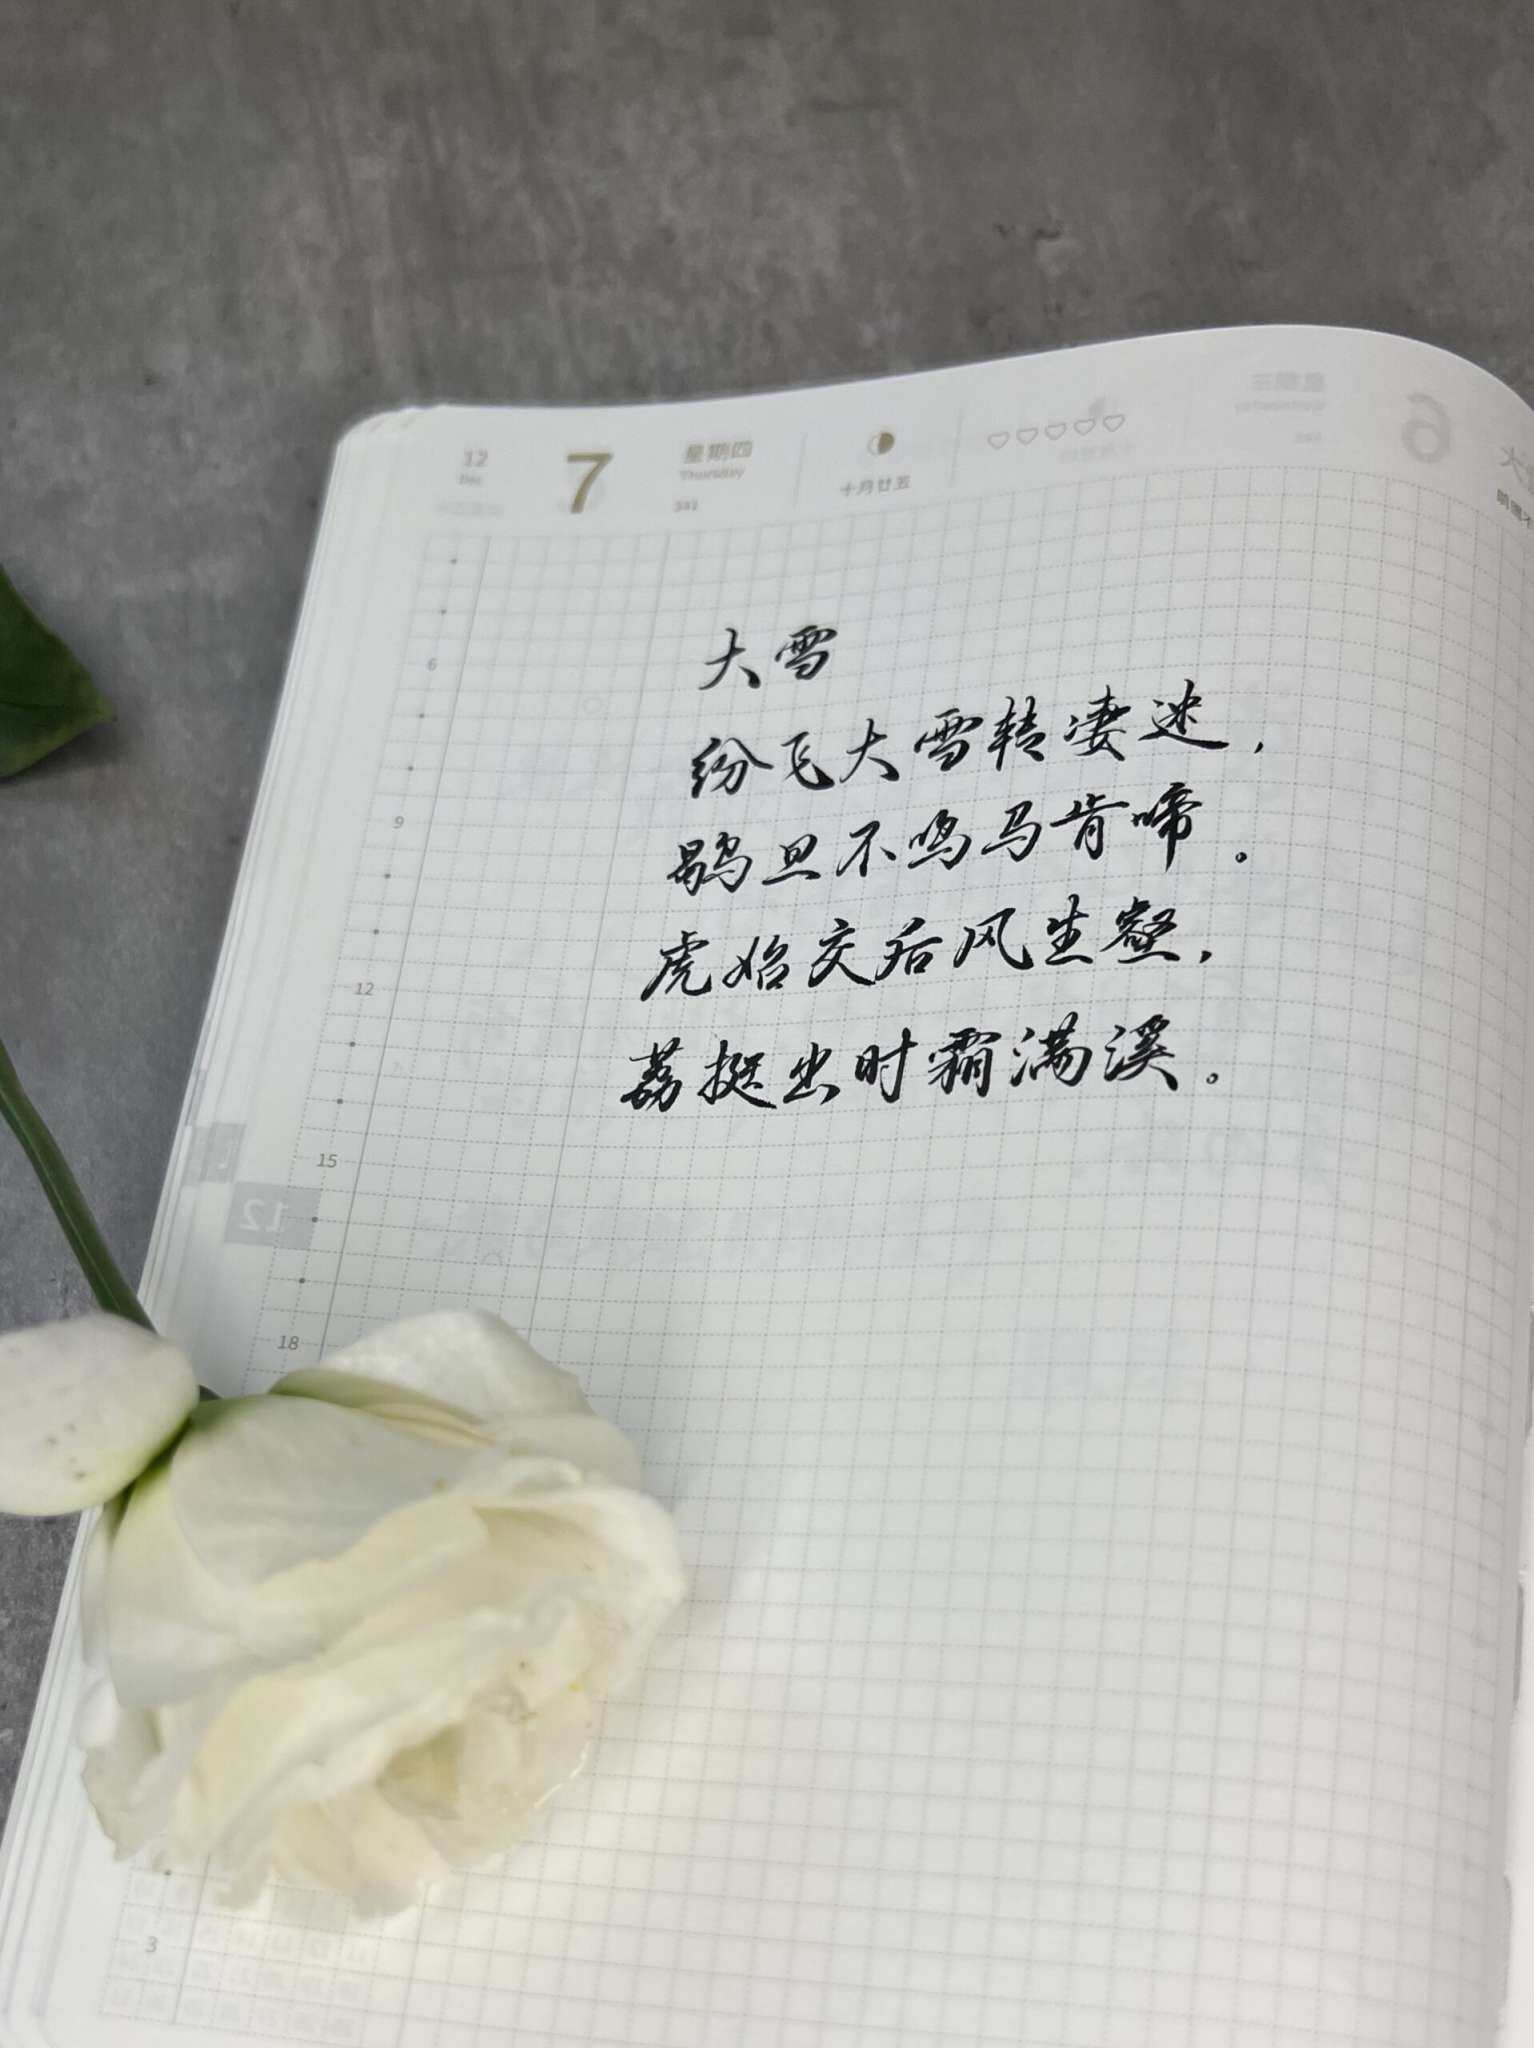 12
Dec
7
星期四
Thursday
341
十月廿五
大雪
纷飞大雪转凄迷，
鹖旦不鸣马肯啼。
虎始交后风生壑，
荔挺出时霜满溪。
6
9
12
15
18
3
12
6